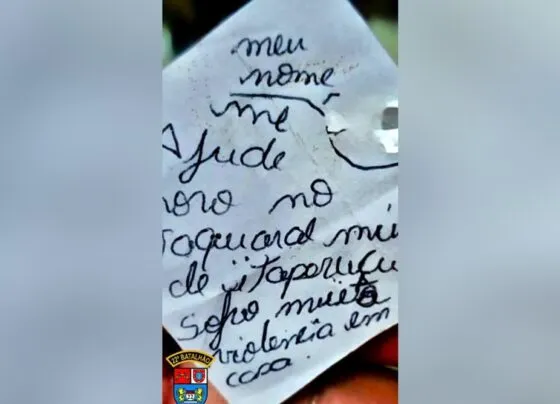 meu
nome
me
Ajude
moro no
Taquaral mu
de itaperuçu
Sofro muita
violencia em
casa.
22º BATALHÃO
22